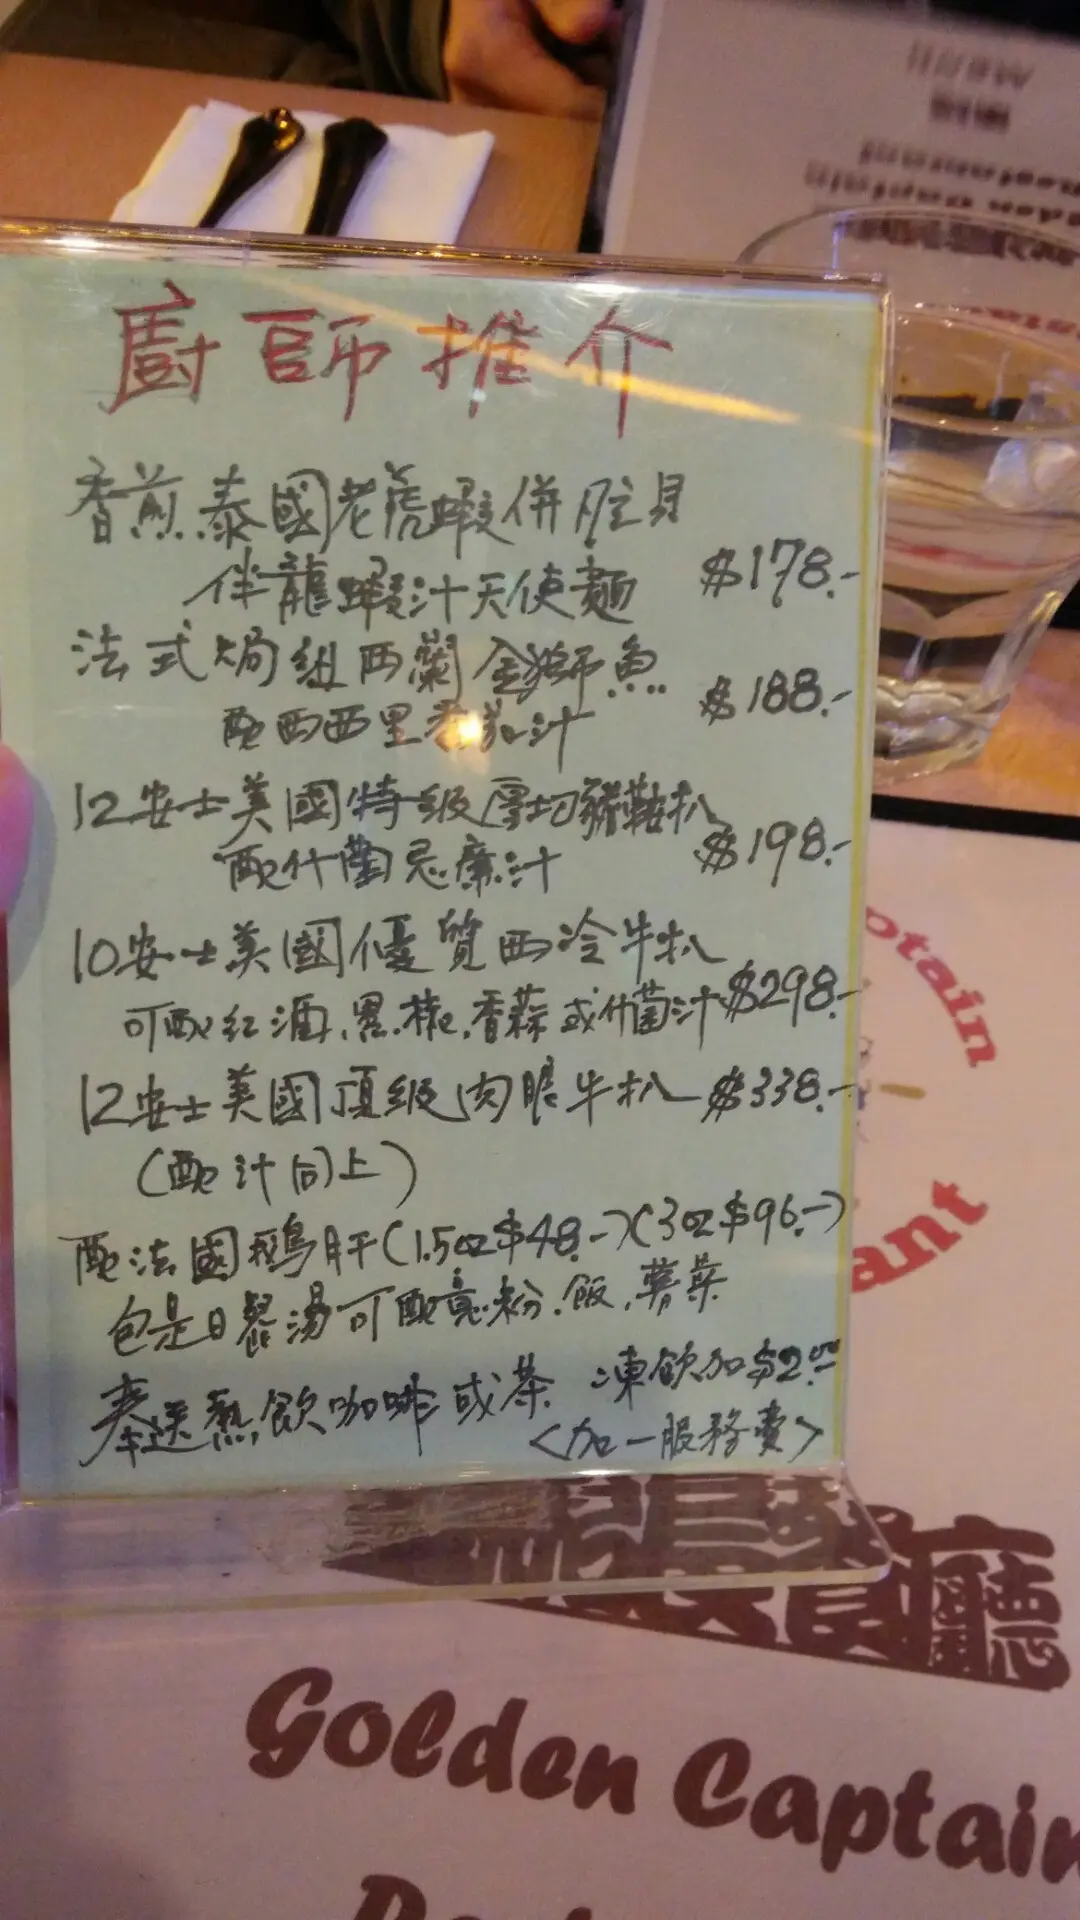 廚師推介
香煎泰國老虎蝦併帶
伴龍蝦汁天使麵 $178.-
法式焗紐西蘭金獅魚
配西西里番茄汁 $188.-
12安士美國特級厚切豬鞍扒
配什菌忌廉汁 $198.-
10安士美國優質西冷牛扒
可配紅酒.黑椒.香蒜或什菌汁 $298.-
12安士美國頂級肉眼牛扒 $338.-
(配汁同上)
配法國鵝肝(1.5oz $48.-)(3oz $96.-)
包是日餐湯可配意粉.飯.薯菜
奉送熱飲咖啡或茶 凍飲加$2.00
<加一服務費>
餐廳
Golden Captain